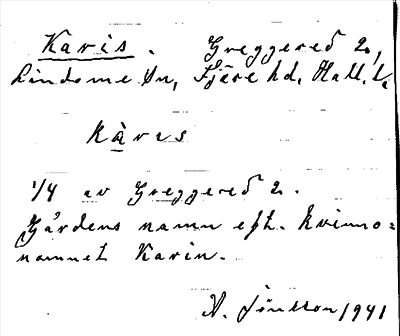 Karis. Greggered 2,
Lindome sn, Fjäre hd. Hall. l.
Kàris
1/4 av Greggered 2.
Gårdens namn eft. kvinno=
namnet Karin.
A. Jönsson 1941